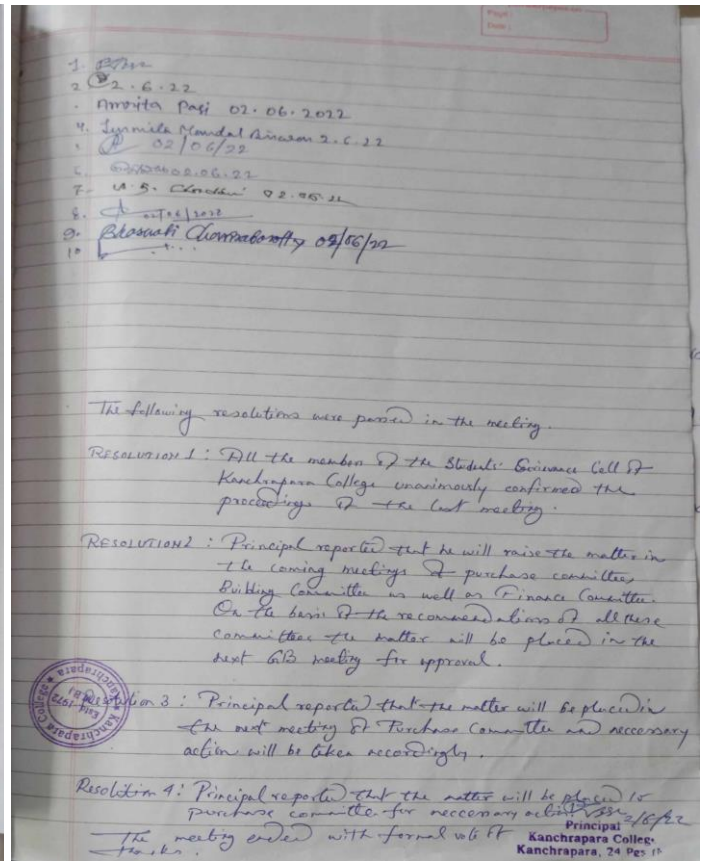 Page :
Date :
1.
2 2.6.22
. Amrita Pasi 02.06.2022
4. Mondal 2.6.22
. 02/06/22
6. 02.06.22
7. 02.06.22
8. 02/06/2022
9. Bhaswati 02/06/22
10
The following resolutions were passed in the meeting.
RESOLUTION 1 : All the member of the Students' Grievance Cell of
Kanchrapara College unanimously confirmed the
proceedings of the last meeting.
RESOLUTION 2 : Principal reported that he will raise the matter in
the coming meetings of purchase committee,
Building Committee as well as Finance Committee.
On the basis of the recommendations of all these
committees the matter will be placed in the
next GB meeting for approval.
Resolution 3 : Principal reported that the matter will be placed in
the next meeting of Purchase Committee and neccessary
action will be taken accordingly.
Resolution 4 : Principal reported that the matter will be placed to
purchase committee for neccessary action.
The meeting ended with formal vote of
thanks.
2/6/22
Principal
Kanchrapara College
Kanchrapara, 24 Pgs
Kanchrapara College
Estd-1972